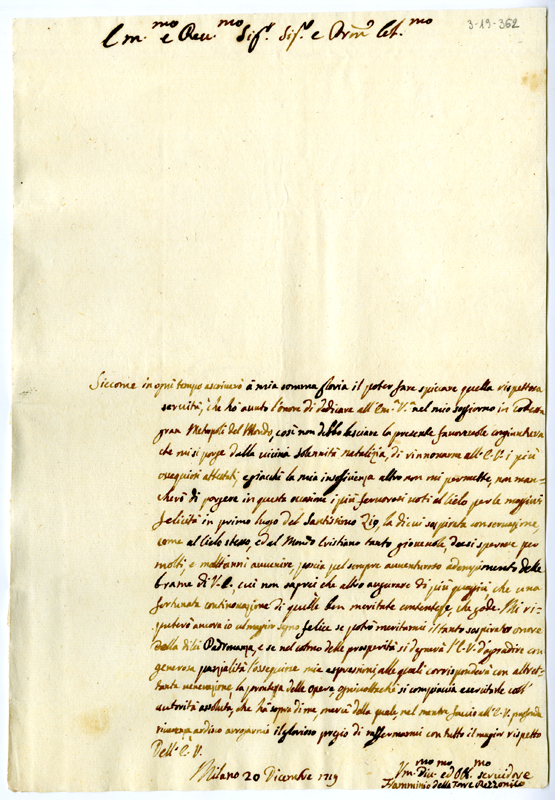 3-19-362
Em.mo e Reu.mo Sig.r Sig.r e Pron. Col.mo
Siccome in ogni tempo ascriverò à mia somma gloria il poter fare spiccare quella rispettosa
servitù, che hò auuto l'onore di dedicare all'Em.a V.a nel mio soggiorno in cotesta
gran Metropoli del Mondo, così non debbo lasciare la presente fauoreuole congiuntura
che mi si porge dalla vicina solennità natalizia, di rinnouarne all'E. V. i più
ossequiosi attestati, e giacchè la mia insufficienza altro non mi permette, non man-
cherò di porgere in questa occasione i più feruorosi voti al Cielo per le maggiori
felicità in primo luogo del Santissimo Zio, la di cui sospirata conseruazione,
come al Cielo stesso, ed al Mondo Cristiano tanto gioueuole, deesi sperare per
molti, e molti anni auuenire, poscia pel sempre auuenturoso adempimento delle
brame di V. E., cui non saprei che altro augurare di più propizio che una
fortunata continouazione di quelle ben meritate contentezze, che gode. Mi ri-
puterò ancora io al maggior segno felice se potrò meritarmi il tanto sospirato onore
della di lei Padronanza, e se nel colmo delle prosperità si degnerà l'E. V. d'aggradire con
generosa parzialità l'ossequiose mie espressioni, alle quali corrisponderà con altret-
tanta venerazione la prontezza delle opere, ogni volta che si compiaccia esercitare coll'
autorità assoluta, che hà sopra di me, mercè della quale, nel mentre faccio all'E. V. profonda
riuerenza, ardisco arrogarmi il glorioso pregio di raffermarmi con tutto il maggior rispetto
Dell'E. V.
Milano 20 Dicembre 1719
Vm.mo Diu.mo ed Obb.mo seruidore
Flamminio della Torre Rezzonico